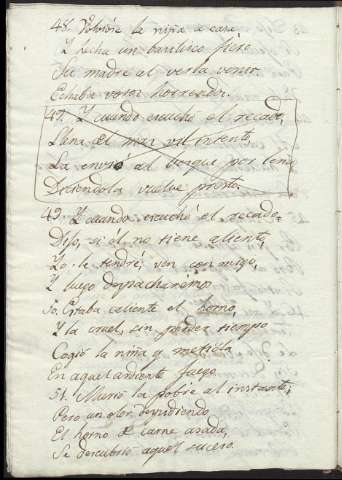 48. Volvióse la niña a casa
Y hecha un basilisco fiero
Su madre al verla venir
Echaba voces horrendas.
49. Y cuando escuchó el recado,
Llena el mas vil intento
La envió al bosque por leña
Diciendola, vuelve pronto.
49. Y cuando escuchó el recado
Dijo, si él no tiene aliento,
Yo le tendré, ven conmigo,
Y luego despacharémos.
50. Estaba caliente el horno,
Y la cruel, sin perder tiempo
Cogió la niña y metióla
En aquel ardiente fuego.
51. Murió la pobre al instante,
Pero un olor despidiendo
El horno a carne asada,
Se descubrió aquel suceso.